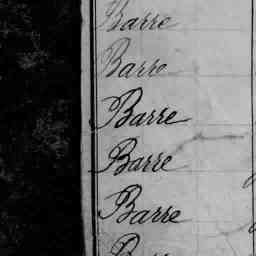 Barre
Barre
Barre
Barre
Barre